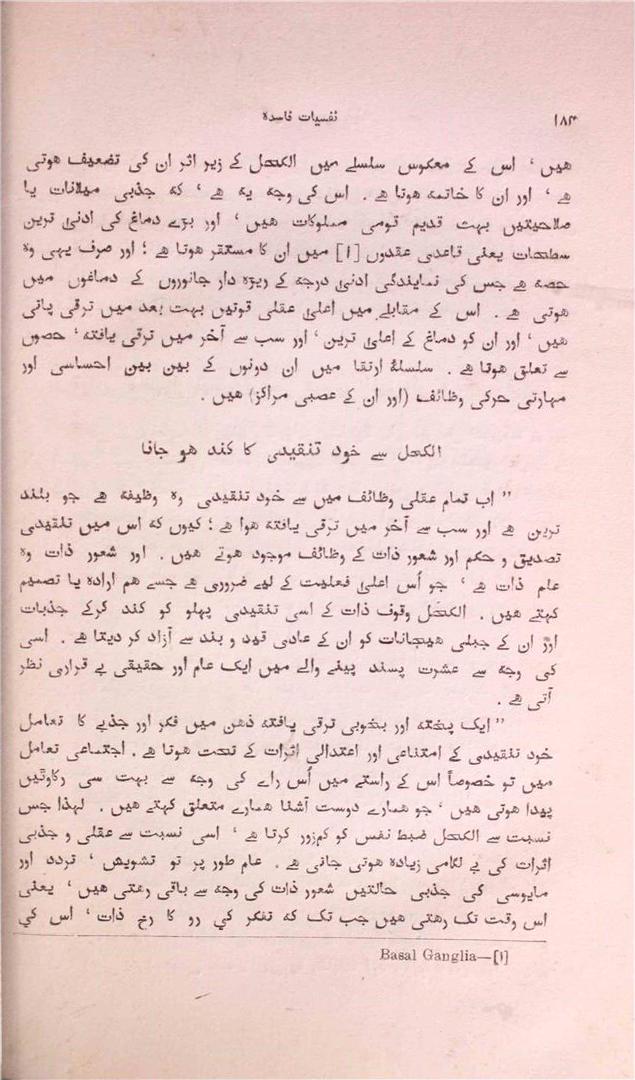 نفسیات فاسدہ ۱۸۴
ھیں ' اس کے معکوس سلسلے میں الکحل کے زیر اثر ان کی تضعیف ھوتی
ھے ' اور ان کا خاتمہ ھوتا ھے . اس کی وجہ یہ ھے ' کہ جذبی میلانات یا
صلاحیتیں بہت قدیم قومی مملوکات ھیں ' اور بڑے دماغ کی ادنیٰ ترین
سطحات یعنی قاعدی عقدوں [۱] میں ان کا مستقر ھوتا ھے ؛ اور صرف یہی وہ
حصہ ھے جس کی نمایندگی ادنیٰ درجہ کے ریڑہ دار جانوروں کے دماغوں میں
ھوتی ھے . اس کے مقابلے میں اعلیٰ عقلی قوتیں بہت بعد میں ترقی پاتی
ھیں ' اور ان کو دماغ کے اعلیٰ ترین ' اور سب سے آخر میں ترقی یافتہ ' حصوں
سے تعلق ھوتا ھے . سلسلۂ ارتقا میں ان دونوں کے بین بین احساسی اور
مہارتی حرکی وظائف (اور ان کے عصبی مراکز) ھیں .
الکحل سے خود تنقیدی کا کند ھو جانا
" اب تمام عقلی وظائف میں سے خود تنقیدی وہ وظیفہ ھے جو بلند
ترین ھے اور سب سے آخر میں ترقی یافتہ ھوا ھے ؛ کیوں کہ اس میں تنقیدی
تصدیق و حکم اور شعور ذات کے وظائف موجود ھوتے ھیں . اور شعور ذات وہ
عام ذات ھے ' جو اُس اعلیٰ فعلیت کے لیے ضروری ھے جسے ھم ارادہ یا تصمیم
کہتے ھیں . الکحل وقوف ذات کے اسی تنقیدی پہلو کو کند کرکے جذبات
اور ان کے جبلی ھیجانات کو ان کے عادی قید و بند سے آزاد کر دیتا ھے . اسی
کی وجہ سے عشرت پسند پینے والے میں ایک عام اور حقیقی بے قراری نظر
آتی ھے .
" ایک پختہ اور بخوبی ترقی یافتہ ذھن میں فکر اور جذبے کا تعامل
خود تنقیدی کے امتناعی اور اعتدالی اثرات کے تحت ھوتا ھے . اجتماعی تعامل
میں تو خصوصاً اس کے راستے میں اُس راے کی وجہ سے بہت سی رکاوٹیں
پیدا ھوتی ھیں ' جو ھمارے دوست آشنا ھمارے متعلق کہتے ھیں . لہذا جس
نسبت سے الکحل ضبط نفس کو کم‌زور کرتا ھے ' اسی نسبت سے عقلی و جذبی
اثرات کی بے لگامی زیادہ ھوتی جاتی ھے . عام طور پر تو تشویش ' تردد اور
مایوسی کی جذبی حالتیں شعور ذات کی وجہ سے باقی رھتی ھیں ' یعنی
اس وقت تک رھتی ھیں جب تک کہ تفکر کی رو کا رخ ذات ' اس کی
Basal Ganglia—[۱]